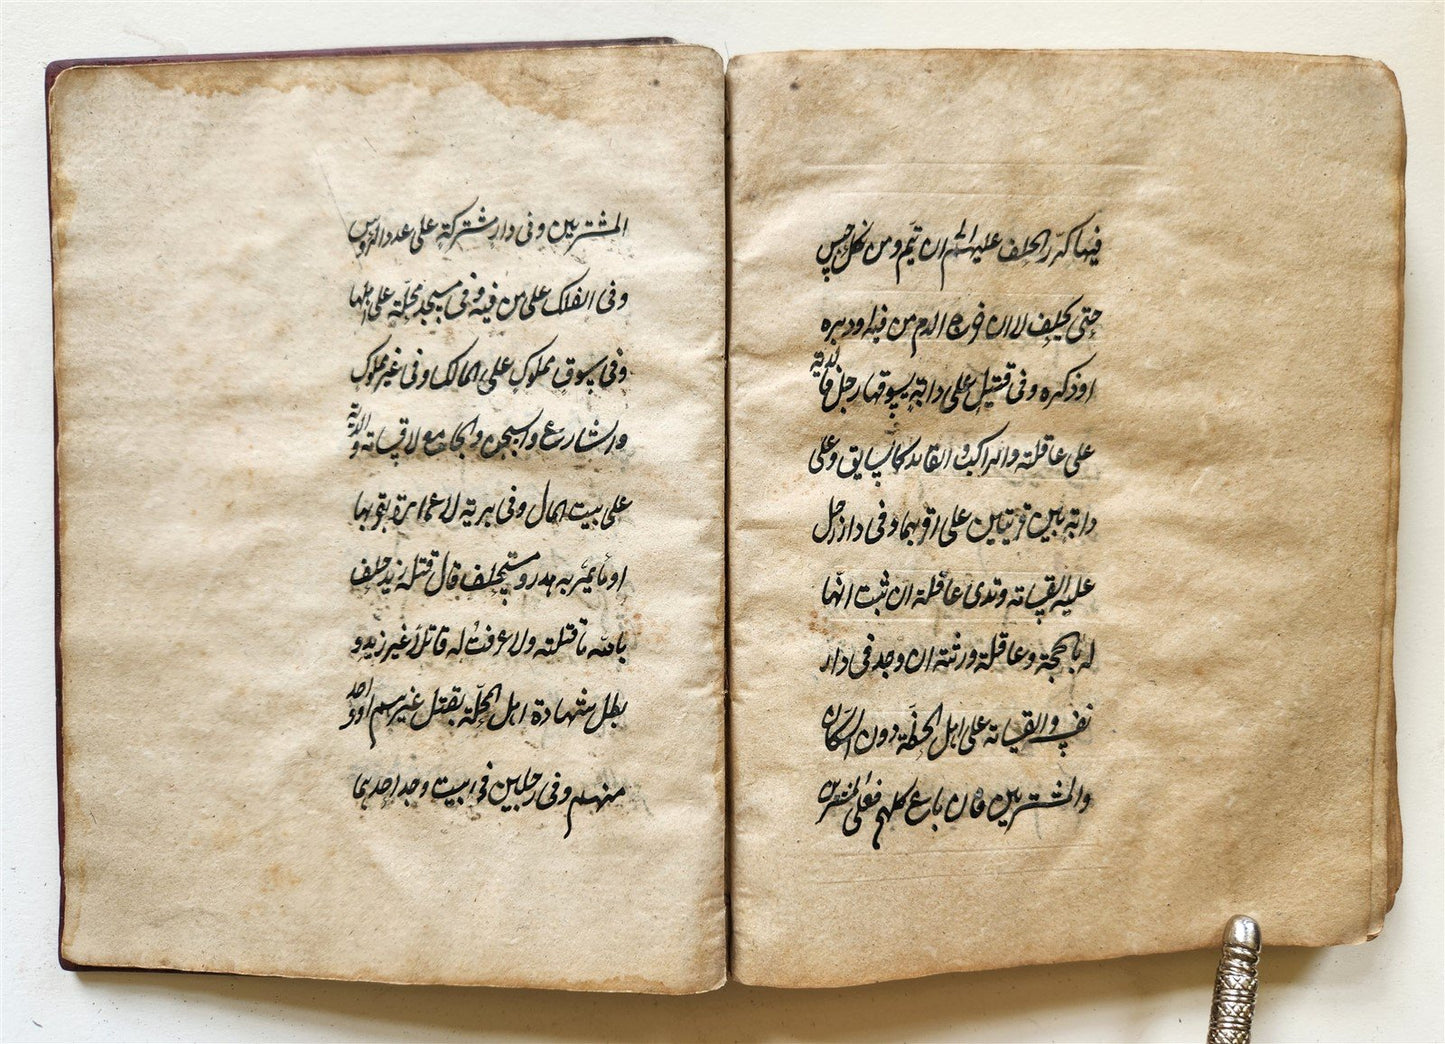 فيها كرر الحلف عليهم الى ان تتم ومن نكل حبس
حتى يحلف لا ان خرج الدم من فيه او دبره
او ذكره وفي قتيل على دابة يسوقها رجل فالدية
على عاقلته والراكب والقائد كالسايق وعلى
دابة بين قريتين على اقربهما وفي دار رجل
عليه القسامة وتدى عاقلته ان ثبت انها
له بالحجة وعاقلة ورثته ان وجد في دار
نفسه والقسامة على اهل الخطة دون السكان
والمشترين فان باع كلهم فعلى المشترين
المشترين وفي دار مشتركة على عدد الرؤس
وفي الفلك على من فيه وفي مسجد محلة على اهلها
وفي سوق مملوك على المالك وفي غير مملوك
والشارع والسجن والجامع لا قسامة والدية
على بيت المال وفي برية لا عمارة بقربها
او ماء يمر به هدر ومستحلف قال قتله زيد حلف
بالله ما قتلته ولا عرفت له قاتلا غير زيد و
بطل شهادة اهل المحلة بقتل غيرهم او واحد
منهم وفي رجلين في بيت وجد احدهما